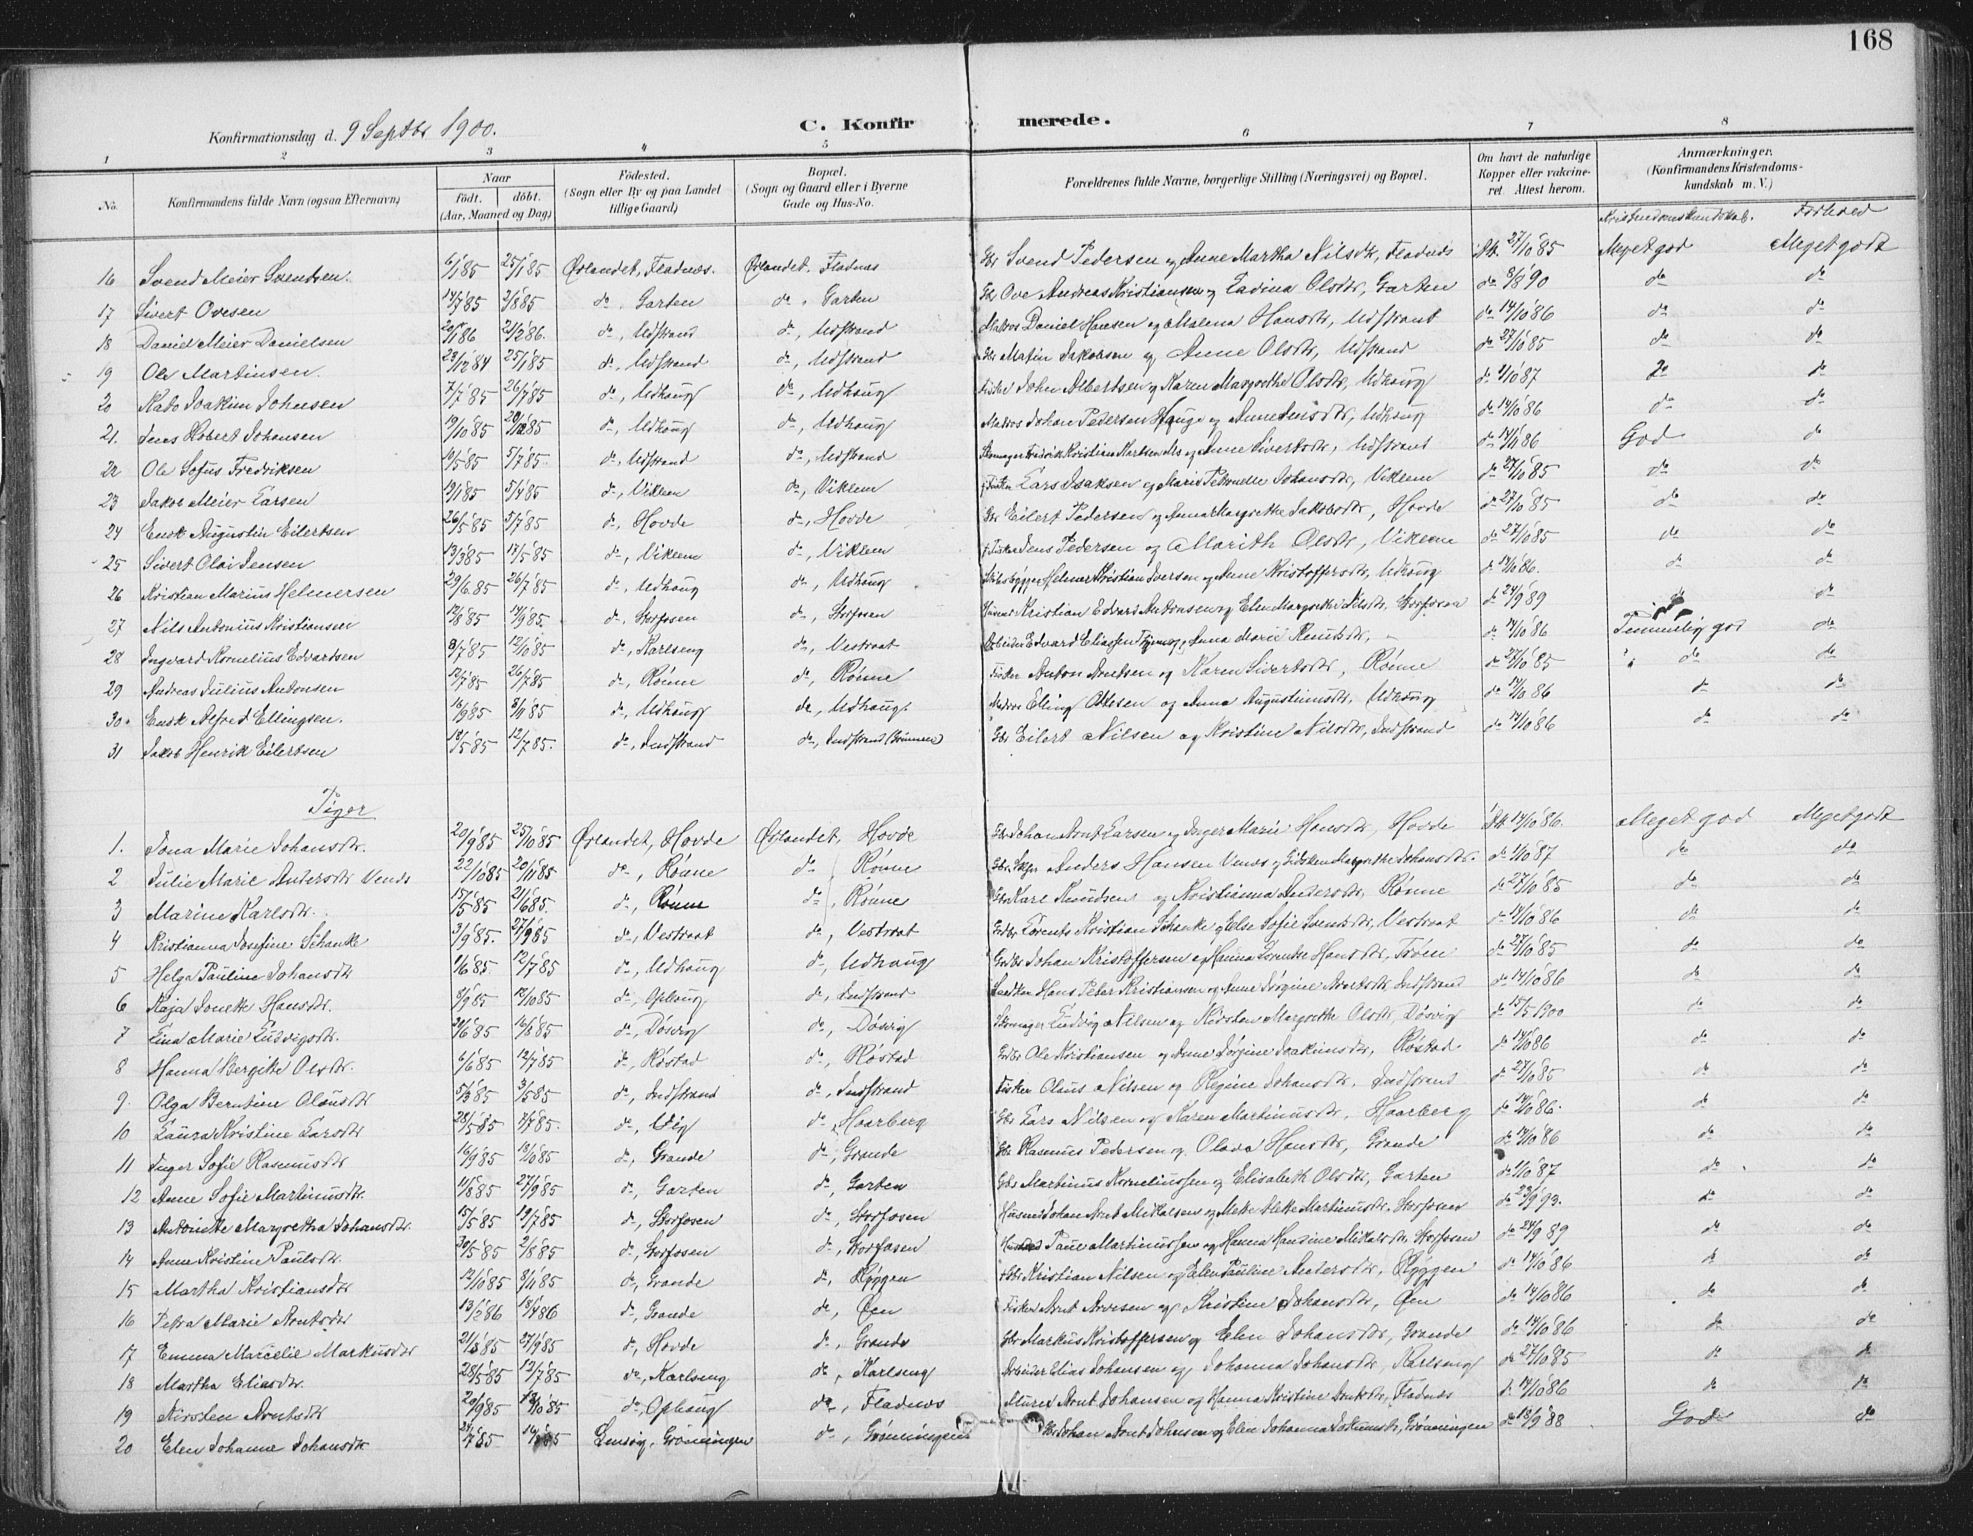 168
Konfirmationsdag d. 9 Septbr 1900.
C. Konfirmerede.
1 2 3 4 5 6 7 8
No. Konfirmandens fulde Navn (ogsaa Efternavn)
Naar
født. døbt.
(Aar, Maaned og Dag)
Födested.
(Sogn eller By og paa Landet
tillige Gaard)
Bopæl.
(Sogn og Gaard eller i Byerne
Gade og Hus-No.
Forældrenes fulde Navne, borgerlige Stilling (Næringsvei) og Bopæl.
Om havt de naturlige
Kopper eller vakcine-
ret. Attest herom.
Anmærkninger.
(Konfirmandens Kristendoms-
kundskab m. V.)
Kristendomskundskab. Forhold
16 Svend Meier Svendsen. 6/1 85 25/1 85 Ørlandet, Fladnes. Ørlandet, Fladnes Gbr Svend Pedersen og Anne Martha Nilsdtr, Fladnes Att. 27/10 85 Meget god Meget godt
17 Sivert Ovesen 14/7 85 2/8 85 do, Garten do, Garten Gbr Ove Andreas Kristiansen og Olsdtr, Garten do 3/9 90 do do
18 Daniel Meier Danielsen 20/1 86 21/2 86. do, Udstrand do, Udstrand Matros Daniel Hansen og Malena Hansdtr, Udstrand do 14/10 86 do do
19 Ole Martinsen. 23/12 84 25/1 85 do, Udstrand do, Udstrand Gbr Martin Jakobsen og Anne Olsdtr, Udstrand do 27/10 85 do do
20 Joakim Johnsen 7/7 85 26/7 85 do, Udhaug do, Udhaug Fisker John Albertsen og Karen Margrethe Olsdtr, Udhaug do 1/10 87 do do
21. Jens Robert Johansen 19/10 85 20/12 85 do, Udhaug do, Udhaug Matros Johan Pedersen Hauge og Anne Jensdtr, Udhaug do 14/10 86 do do
22 Ole Sofus Fredriksen 10/5 85 5/7 85. do, Udstrand do, Udstrand Skomager Fredrik Kristian og Anne Sivertsdtr, Udstrand do 14/10 86 God do
23 Jakob Meier Larsen 13/1 85 5/4 85 do, Viklem do, Viklem Fisker Lars Isaksen og Marie Petronelle Johansdtr, Viklem do 27/10 85 do do
24 Enok Augustin Eilertsen 26/5 85 5/7 85 do, Hovde do, Hovde Gbr Eilert Pedersen og Anna Margrethe Jakobsdtr, Hovde do 27/10 85 do do
25 Sivert Olai Jensen 13/3 85 17/5 85 do, Viklem do, Viklem Fisker Jens Pedersen og Marith Olsdtr, Viklem do 27/10 85 do do
26 Kristian Marius Helmersen 29/6 85 26/7 85 do, Udhaug do, Udhaug Skibsbygger Helmer Kristian Iversen og Anne Kristoffersdtr, Udhaug do 14/10 86. do do
27 Nils Antonius Kristiansen 12/8 85 14/9 85 do, Storfosen do, Storfosen Husmd Kristian Edvard Antonsen og Elen Margrethe Nilsdtr, Storfosen do 24/9 89 do
28 Ingvard Kornelius Edvardsen 8/7 85 12/10 85 do, Karlseng do, Vestraat Arbeider Edvard Eliassen og Anna Marie Knudsdtr, do 14/10 86 Temmelig god do
29 Andreas Julius Antonsen 12/7 85 26/7 85 do, Rønne do, Rønne Fisker Anton Arntsen og Karen Sivertsdtr, Rønne do 27/10 85 do do
30 Enok Alfred Ellingsen. 16/9 85 8/11 85 do, Udhaug do, Udhaug Matros Elling Ottesen og Anna Augustinusdtr, Udhaug do 14/10 86 do do
31 Jakob Henrik Eilertsen 18/5 85 12/7 85. do, Indstrand do, Indstrand Gbr Eilert Nilsen og Kristine Nilsdtr, Indstrand do 14/10 86 do do
Piger
1. Jona Marie Johansdtr. 20/9 85 25/10 85 Ørlandet, Hovde Ørlandet, Hovde Gbr Johan Arnt Larsen og Inger Marie Hansdtr, Hovde Att. 14/10 86. Meget god Meget godt
2 Julie Marie Andersdtr Venes 22/10 85 20/11 85 do, Rønne do, Rønne Gbr Anders Hansen Venes og Gidsken Margrethe Johansdtr. do 1/10 87 do do
3 Marine Karlsdtr. 15/5 85 21/6 85. do, Rønne do, Rønne Gbr Karl Knudsen og Kristianna Andersdtr, Rønne do 27/10 85 do do
4 Kristianna Josefine Schanke 3/9 85. 27/9 85 do, Vestraat do, Vestraat Gbr Lorents Kristian Schanke og Else Sofie Svendsdtr, Vestraat do 14/10 86 do do
5 Helga Pauline Johansdtr 1/6 85. 12/7 85 do, Udhaug do, Udhaug Johan Kristoffersen og Hanna Hansdtr, do 27/10 85 do do
6 Kaja Jonette Hansdtr. 3/9 85 12/10 85 do, Ophaug do, Indstrand Hans Peter Kristiansen og Anne Jørgine Arntsdtr, Indstrand do 14/10 86 do do
7 Lina Marie Ludvigsdtr. 20/6 85 16/8 85 do, Døsvig do, Døsvig Skomager Ludvig Nilsen og Kirsten Margrethe Olsdtr, Døsvig do 15/5 1900 do do
8 Hanna Bergitte Olsdtr. 6/6 85 12/7 85 do, Røstad do, Røstad Gbr Ole Kristiansen og Anne Jørgine Joakimsdtr, Røstad. do 14/10 86 do do
9. Olga Berntine Olausdtr 5/3 85 3/5 85 do, Indstrand do, Indstrand Fisker Olaus Nilsen og Regine Johansdtr, Indstrand do 27/10 85 do do
10 Laura Kristine Larsdtr 28/5 85 7/7 85. do, Uthaug do, Haarberg Gbr Lars Nilsen og Karen Martinusdtr, Haarberg do 14/10 86. do do
11 Inger Sofie Rasmusdtr 16/9 85 18/10 85 do, Grande do, Grande Gbr Rasmus Pedersen og Olava Hansdtr, Grande do 14/10 86 do do
12 Anne Sofie Martinusdtr. 11/8 85 27/9 85 do, Garten do, Garten Gbr Martinus Korneliussen og Elisabeth Olsdtr, Garten do 1/10 87 do do
13 Antonette Margretha Johansdtr. 15/5 85 19/7 85 do, Storfosen do, Storfosen Husmd Johan Arnt Mikalsen og Mette Martinusdtr, Storfosen do 23/9 93. do do
14 Anne Kristine Paulsdtr. 30/5 85 2/8 85 do, Storfosen do, Storfosen Paul Martinussen og Hanna Hansine Mikalsdtr, Storfosen do 24/9 89 do do
15 Martha Kristiansdtr 12/10 85 8/11 85 do, Grande do, Ryggen Gbr Kristian Nilsen og Elen Pauline Andersdtr, Ryggen do 14/10 86 do do
16 Petra Marie Arntsdtr 13/2 86 18/4 86 do, Grande do, Øen Fisker Arnt Arvesen og Kristine Johansdtr, Øen do 14/10 86 do do
17 Emma Marcelie Markusdtr 21/8 85 27/9 85 do, Hovde do, Grande Gbr Markus Kristoffersen og Elen Johansdtr, Grande do 14/10 86 do do
18 Martha Eliasdtr. 28/5 85 12/7 85 do, Karlseng do, Karlseng Arbeider Elias Johansen og Johanna Johansdtr, Karlseng do 27/10 85 do do
19 Kirsten Arntsdtr 20/9 85 18/10 85 do, Ophaug do, Fladnæs Murer Arnt Johansen og Hanna Kristine Arntsdtr, Fladnæs do 14/10 86 do do
20 Elen Johanne Johansdtr 24/7 85 16/8 85 Lensvig, Grønningen do, Grønningen Gbr Johan Arnt Johnsen og Elen Johanna Joakimsdtr, Grønningen do 18/9 88 God do